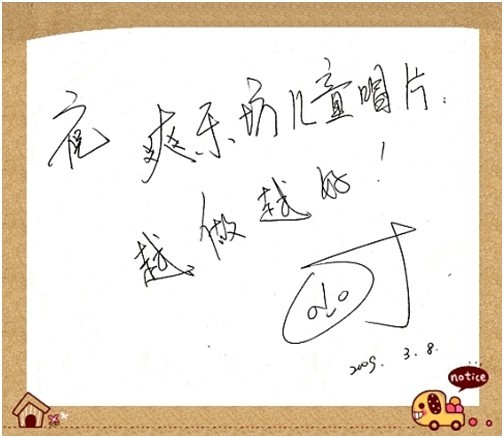 祝 爽乐坊儿童唱片
越做越好!
2009. 3. 8.
notice